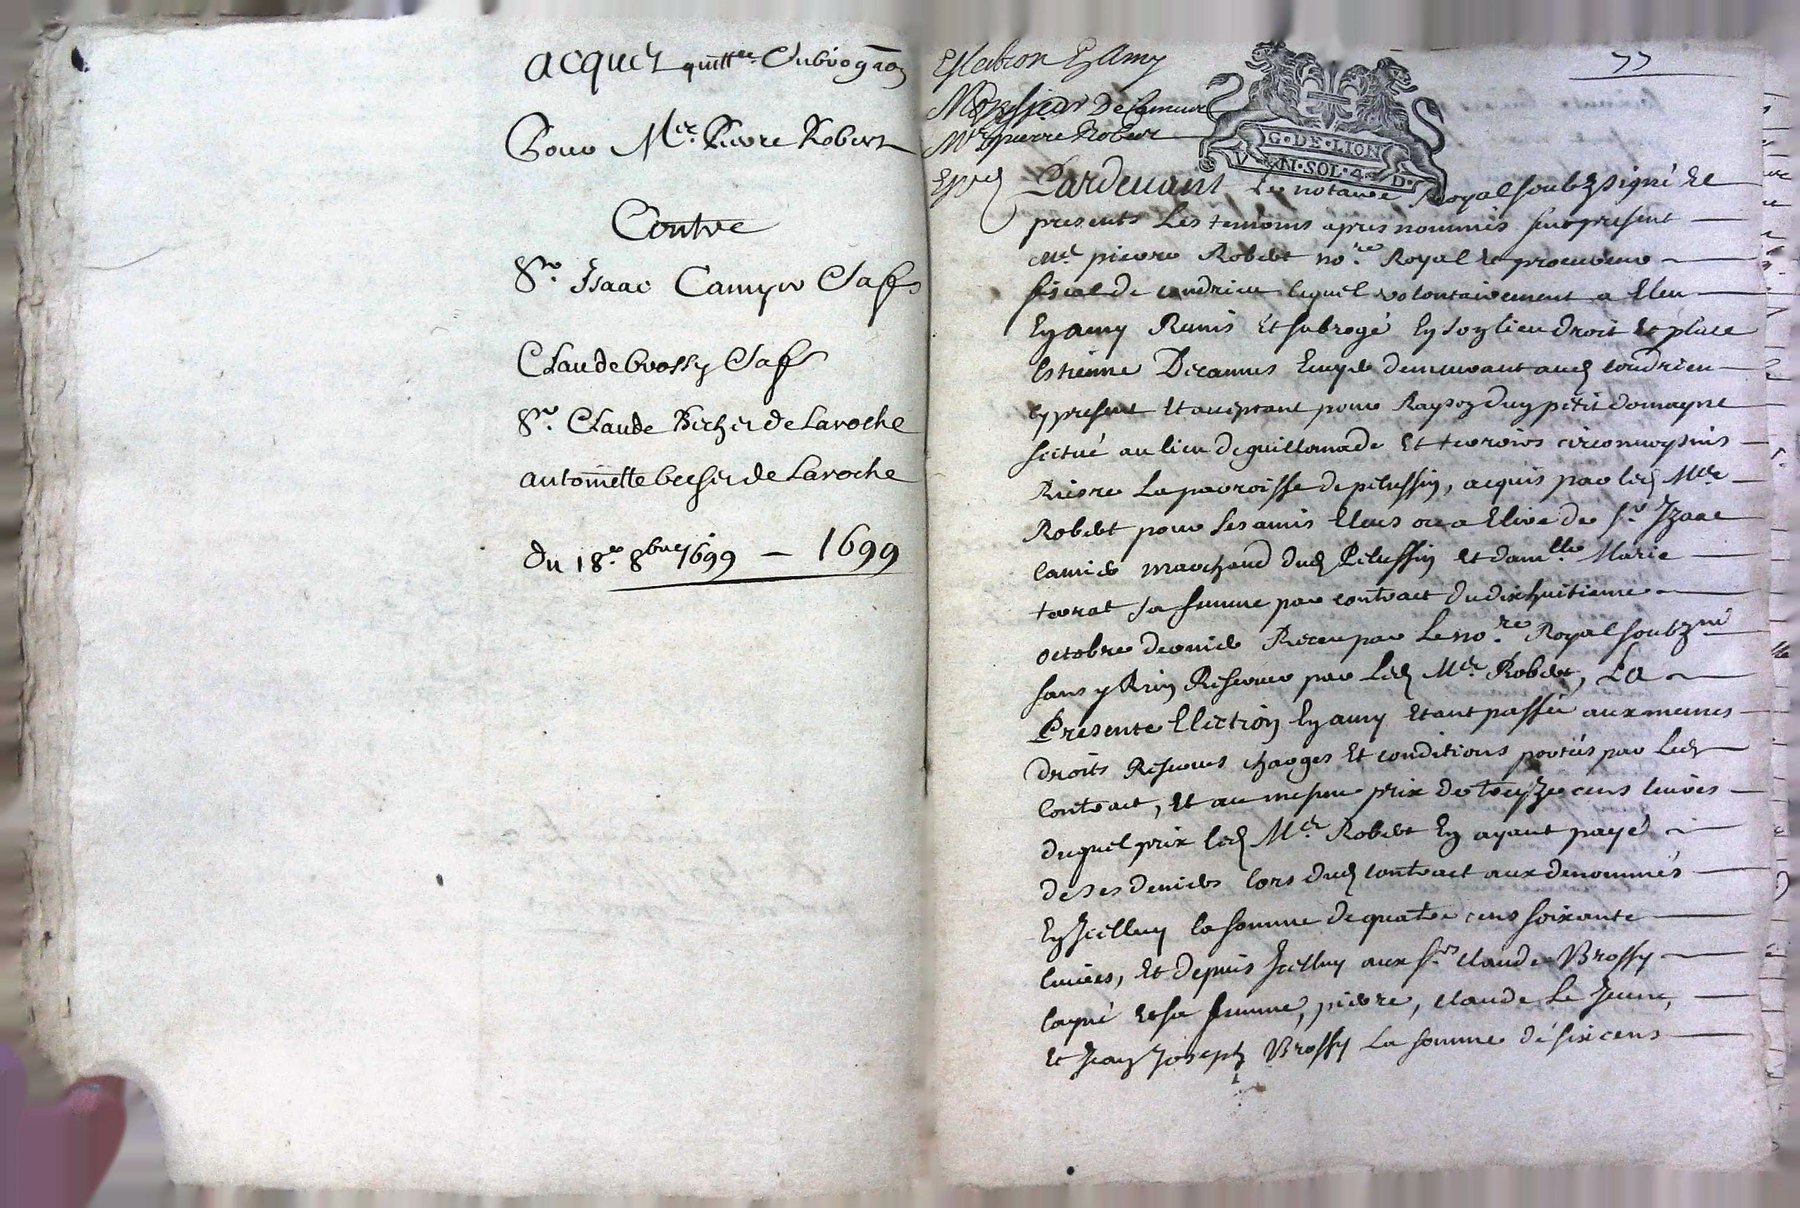 acquis quittce Subrogaōn
Pour Me. Pierre Robert
Contre
Sr. Isaac Camyer
Claude Brossy
Sr. Claude Becher de Laroche
Antoinette becher de Laroche
du 18e. 8bre 1699 — 1699
Eslection En Amy
Monsieur De Cameur
Me pierre Robert
77
G·DE·LION
V N·SOL·4·D·
Pardevant Le notaire Royal soubzsigné Et
presents Les temoins apres nommés fut present
Me. pierre Robert nore. Royal Et procureur
fiscal de condrieu lequel volontairement a Eleu
En amy Remis Et subrogé En son lieu droit Et place
Estienne Decamus Ecuyer demeurant aud condrieu
cy present Et acceptant pour Raison dun petit domayne
scitué au lieu de guillomade Et terroirs circonvoysins
Riere La parroisse de pelussin, acquis par led Me
Robert pour ses amis Eleus ou a Elire de Sr. Izaac
Camier marchand dud Pelussin Et damlle. Marie
terrat sa femme par contract du dix huitieme
octobre dernier Receu par Le nore. Royal soubzné
sans y Rien Reserver par Led Me. Robert, La
Presente Election En amy Etant passée aux memes
droits Reserves charges Et conditions portés par Led
Contract, Et au mesme prix de treize cens livres
duquel prix led Me. Robert En ayant payé
de ses deniers lors dud contract aux denommés
En Icelluy la somme de quatre cens soixante
livres, Et depuis Icelluy aux Srs. Claude Brossy
layné Et sa femme, pierre, Claude Le Jeune,
Et Jean Joseph Brossy La somme de six cens